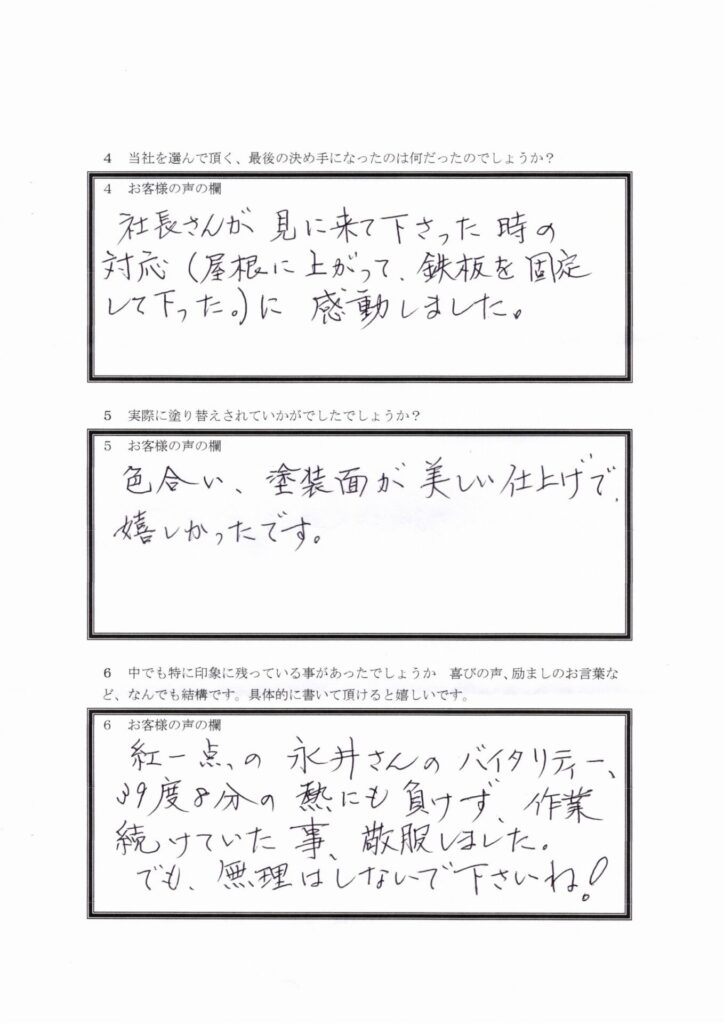 4 当社を選んで頂く、最後の決め手になったのは何だったのでしょうか？
4 お客様の声の欄
社長さんが 見に来て下さった 時の
対応（屋根に上がって、鉄板を固定
して下った。）に 感動しました。
5 実際に塗り替えされていかがでしたでしょうか？
5 お客様の声の欄
色合い、塗装面が美しい仕上げで、
嬉しかったです。
6 中でも特に印象に残っている事があったでしょうか 喜びの声、励ましのお言葉な
ど、なんでも結構です。具体的に書いて頂けると嬉しいです。
6 お客様の声の欄
紅一点の 永井さんの バイタリティー、
39度8分の 熱にも 負けず、作業
続けていた 事、敬服しました。
でも、無理はしないで下さいね！